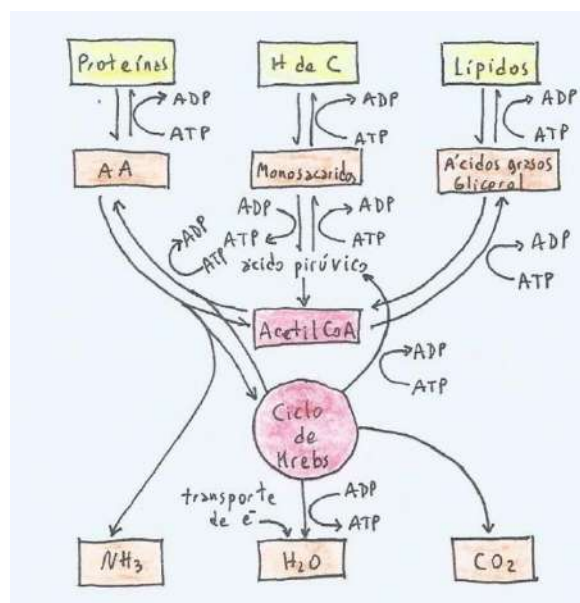 Proteínas
H de C
Lípidos
ADP
ATP
ADP
ATP
ADP
ATP
AA
Monosacaridos
Ácidos grasos
Glicerol
ADP
ATP
ADP
ATP
ADP
ATP
ADP
ATP
ácido pirúvico
Acetil CoA
ADP
ATP
Ciclo
de
Krebs
transporte
de e⁻
ADP
ATP
NH₃
H₂O
CO₂